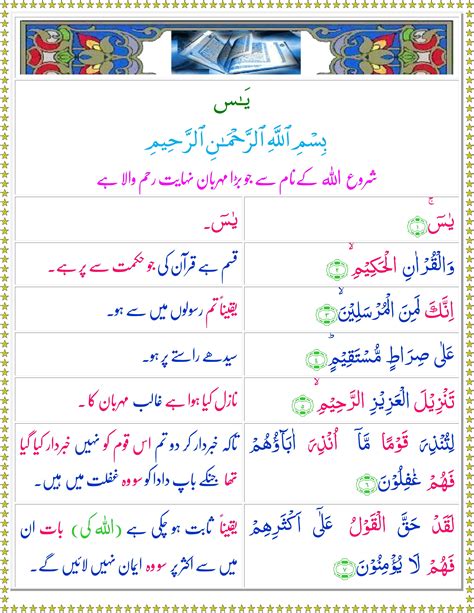 یٰسٓ
بِسْمِ ٱللَّهِ ٱلرَّحْمَٰنِ ٱلرَّحِيمِ
شروع اللہ کے نام سے جو بڑا مہربان نہایت رحم والا ہے
يٰسٓ ۚ ﴿١﴾
یٰسٓ۔
وَالْقُرْاٰنِ الْحَكِيْمِ ۙ ﴿٢﴾
قسم ہے قرآن کی جو حکمت سے پر ہے۔
اِنَّكَ لَمِنَ الْمُرْسَلِيْنَ ۙ ﴿٣﴾
یقیناً تم رسولوں میں سے ہو۔
عَلٰى صِرَاطٍ مُّسْتَقِيْمٍ ؕ ﴿٤﴾
سیدھے راستے پر ہو۔
تَنْزِيْلَ الْعَزِيْزِ الرَّحِيْمِ ۙ ﴿٥﴾
نازل کیا ہوا ہے غالب مہربان کا۔
لِتُنْذِرَ قَوْمًا مَّاۤ اُنْذِرَ اٰبَآؤُهُمْ
فَهُمْ غٰفِلُوْنَ ﴿٦﴾
تاکہ خبردار کر دو تم اس قوم کو نہیں خبردار کیا گیا
تھا جنکے باپ دادا کو سو وہ غفلت میں ہیں۔
لَقَدْ حَقَّ الْقَوْلُ عَلٰٓى اَكْثَرِهِمْ
فَهُمْ لَا يُؤْمِنُوْنَ ﴿٧﴾
یقیناً ثابت ہو چکی ہے (اللہ کی) بات ان
میں سے اکثر پر سو وہ ایمان نہیں لائیں گے۔